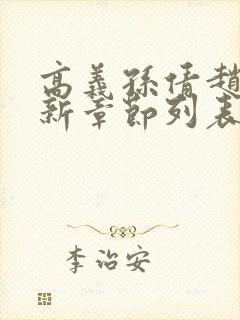 高義孫倩趙
新章節列表
李治安